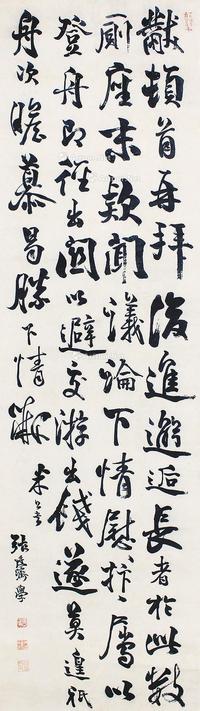 黻頓首再拜後進邂逅長者於此數
廁座末款聞議論下情慰忭屬以
登舟即徑出関以避交游出餞遂莫遑祇
舟次瞻慕曷勝下情黻 米公書
張廷濟學